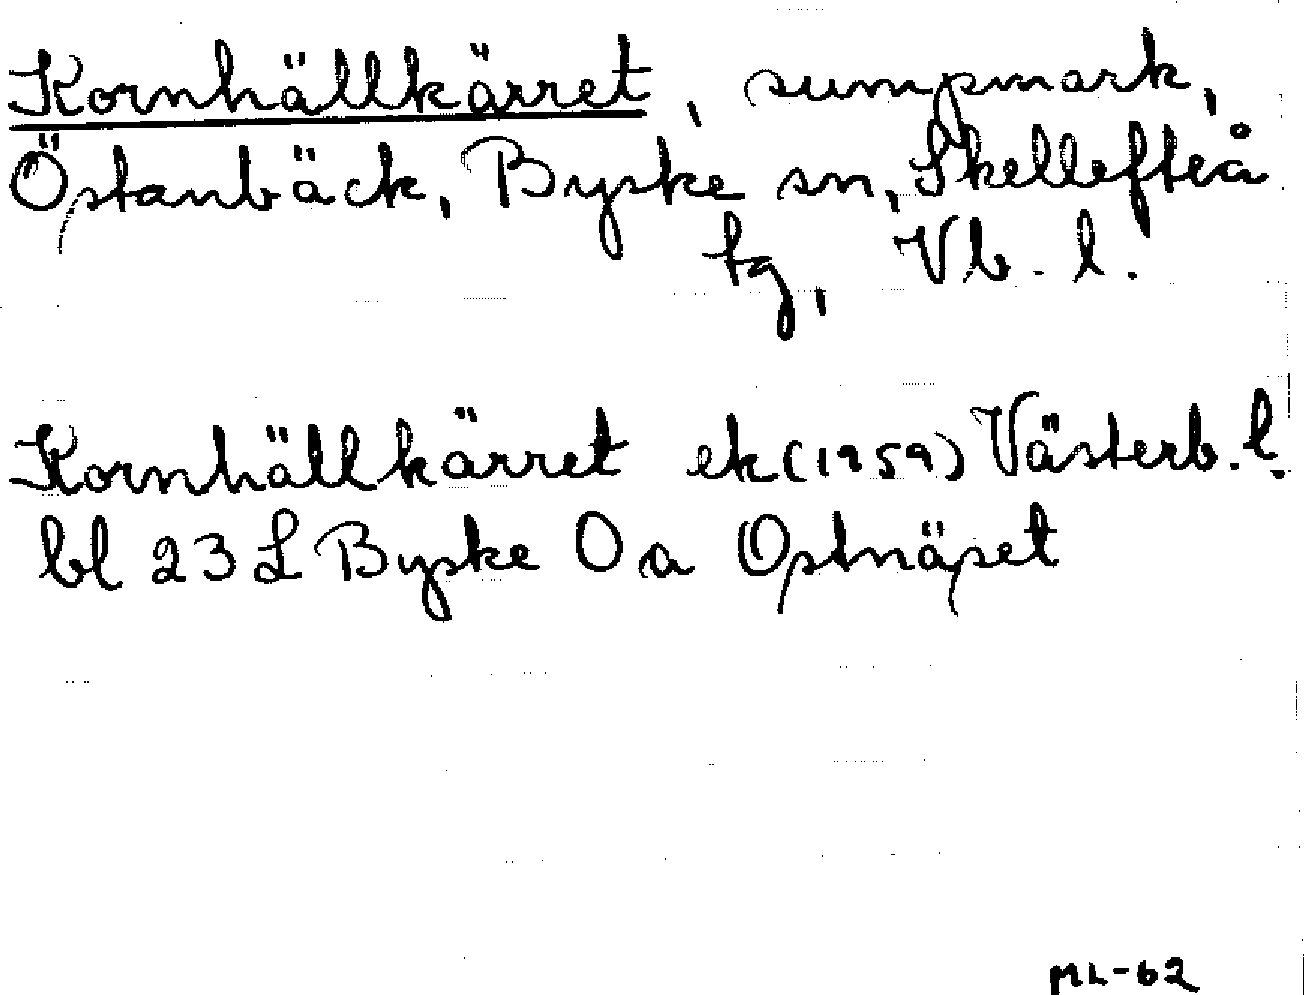 Kornhällkärret, sumpmark,
Östanbäck, Byske sn, Skellefteå
tg, Vb. l.
Kornhällkärret ek (1959) Västerb. l.
bl 23 L Byske 0 a Ostnäset
ML-62